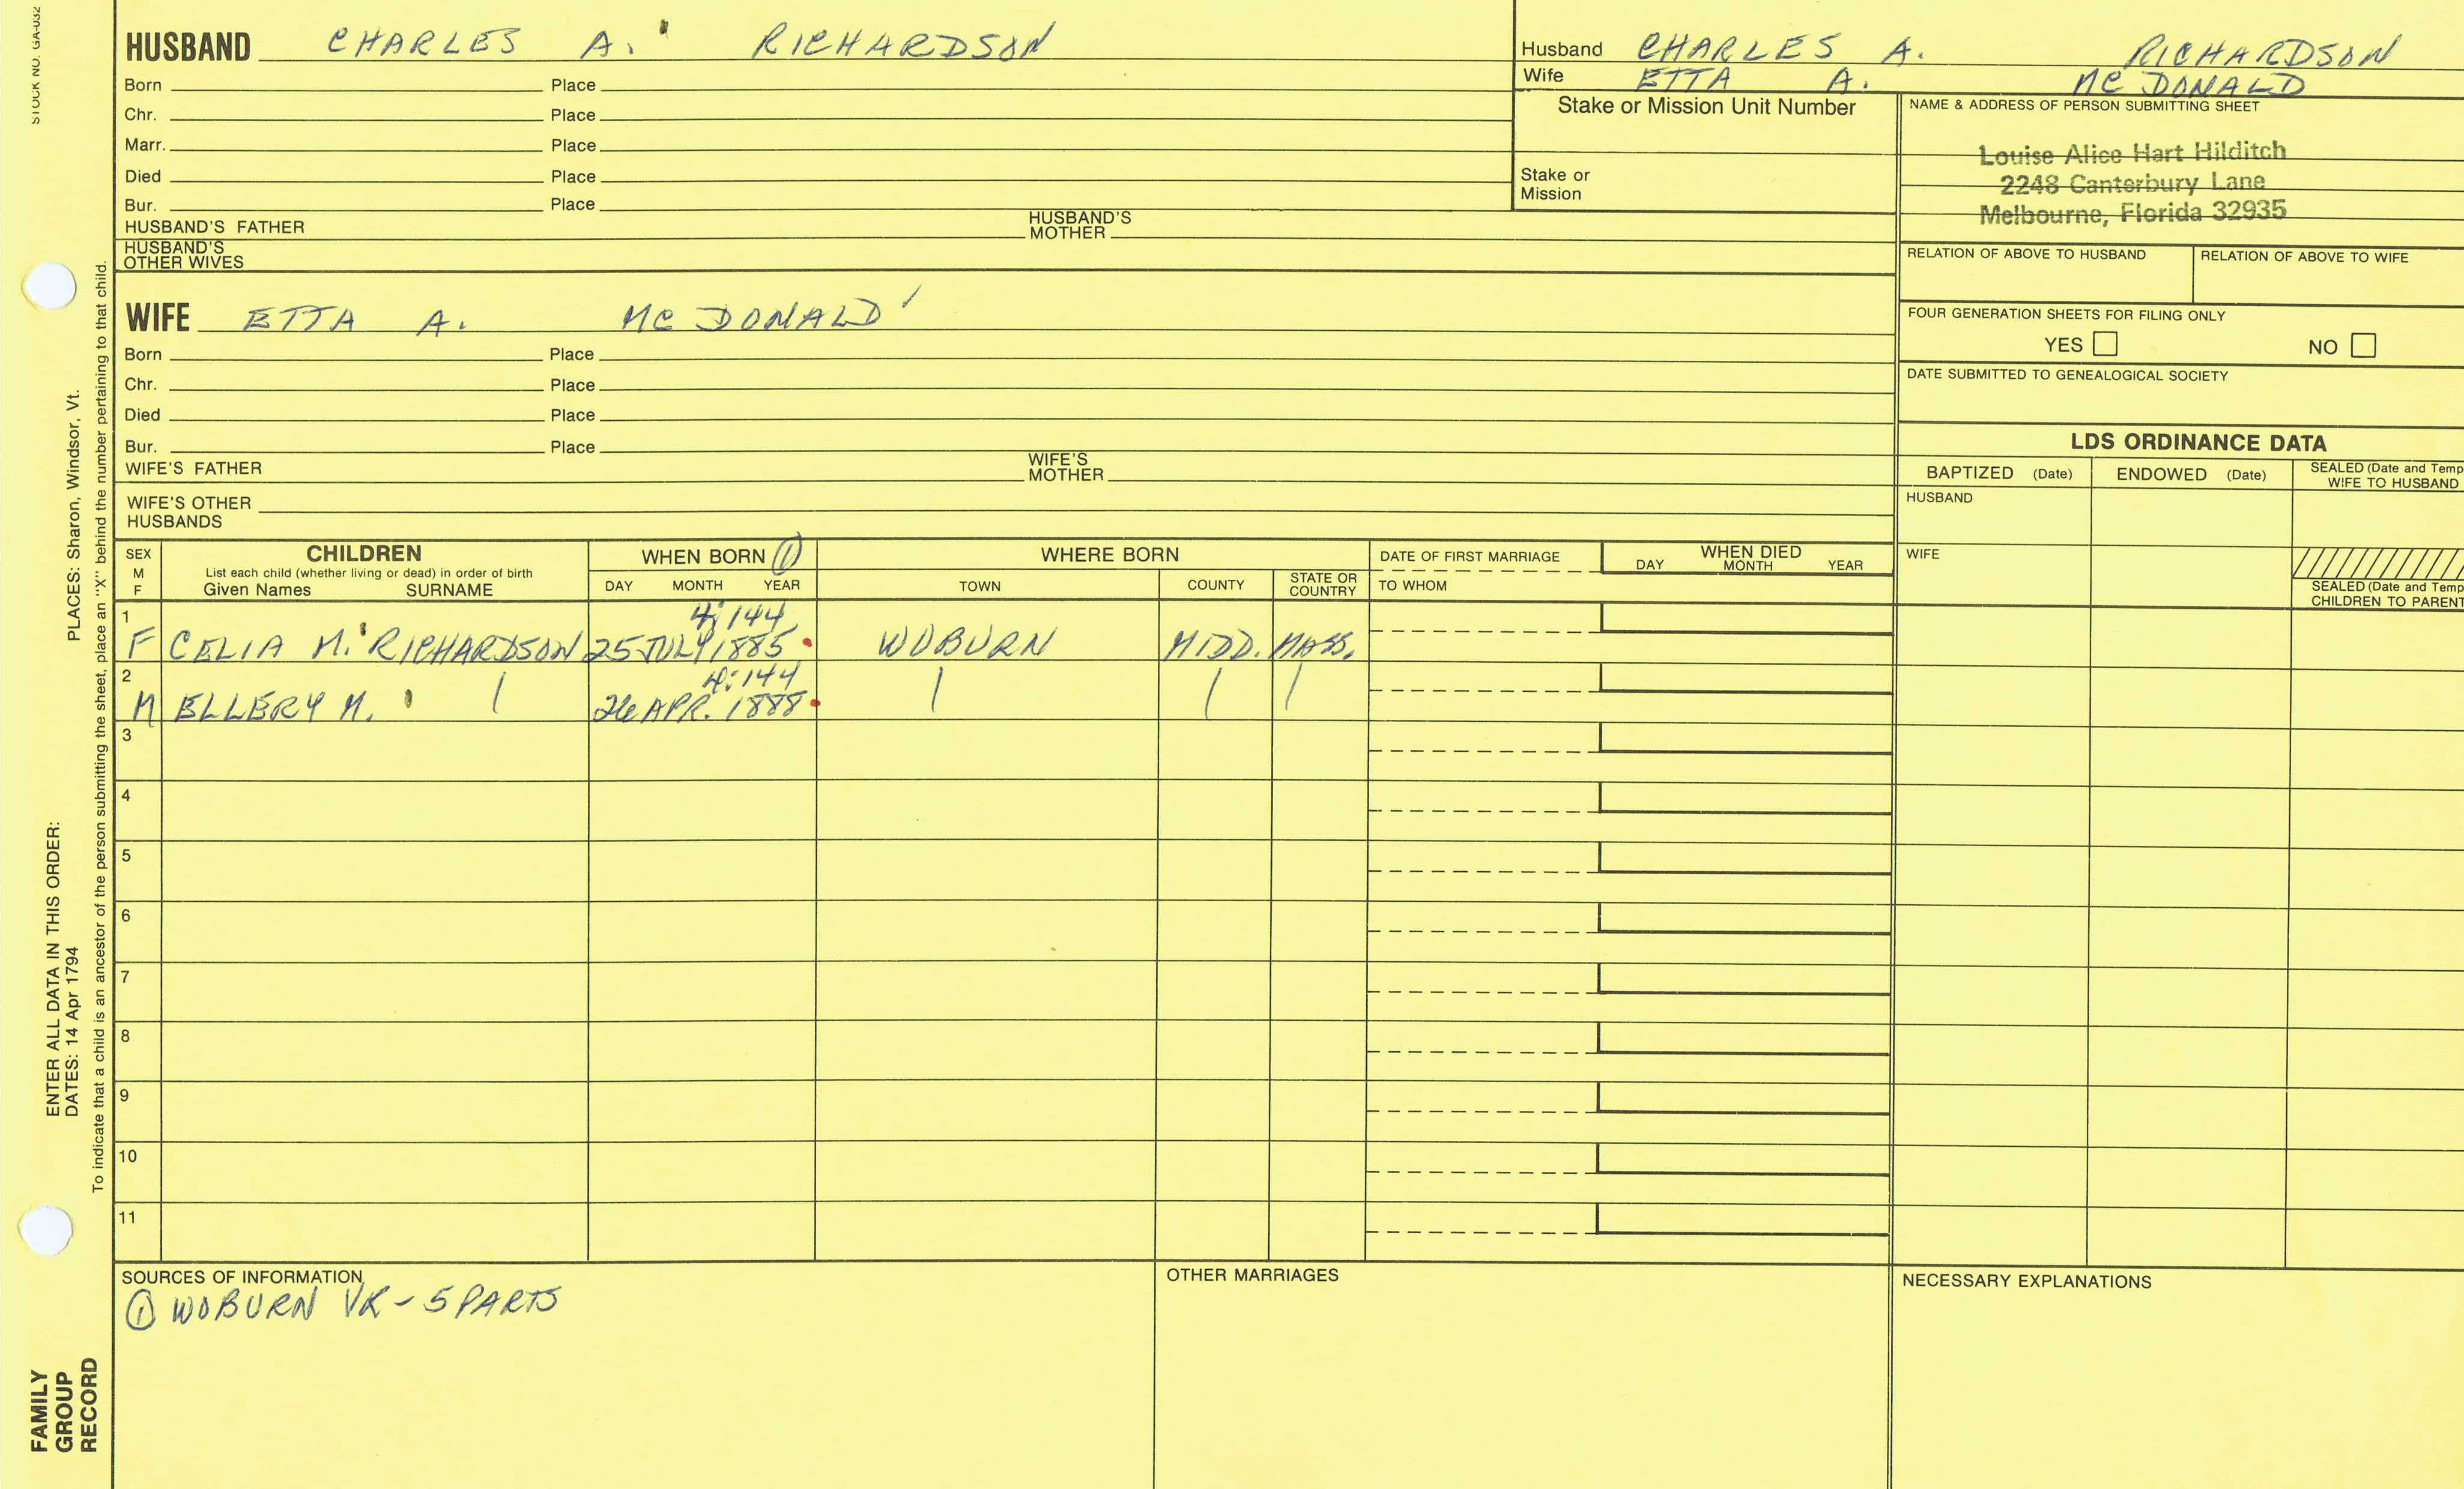 STOCK NO. GA-032
HUSBAND CHARLES A. RICHARDSON
Born Place
Chr. Place
Marr. Place
Died Place
Bur. Place
HUSBAND'S FATHER HUSBAND'S MOTHER
HUSBAND'S OTHER WIVES
Husband CHARLES A. RICHARDSON
Wife ETTA A. MC DONALD
Stake or Mission Unit Number
Stake or Mission
NAME & ADDRESS OF PERSON SUBMITTING SHEET
Louise Alice Hart Hilditch
2248 Canterbury Lane
Melbourne, Florida 32935
RELATION OF ABOVE TO HUSBAND RELATION OF ABOVE TO WIFE
FOUR GENERATION SHEETS FOR FILING ONLY
YES NO
DATE SUBMITTED TO GENEALOGICAL SOCIETY
WIFE ETTA A. MC DONALD
Born Place
Chr. Place
Died Place
Bur. Place
WIFE'S FATHER WIFE'S MOTHER
WIFE'S OTHER HUSBANDS
LDS ORDINANCE DATA
BAPTIZED (Date) ENDOWED (Date) SEALED (Date and Temp
WIFE TO HUSBAND
HUSBAND
WIFE
SEALED (Date and Temp
CHILDREN TO PARENT
SEX
M
F
CHILDREN
List each child (whether living or dead) in order of birth
Given Names SURNAME
WHEN BORN ①
DAY MONTH YEAR
WHERE BORN
TOWN COUNTY STATE OR COUNTRY
DATE OF FIRST MARRIAGE
TO WHOM
WHEN DIED
DAY MONTH YEAR
1
4:144
F CELIA M. RICHARDSON 25 JULY 1885 WOBURN MIDD. MASS.
2
4:144
M ELLERY M. | 26 APR. 1888 | | |
3
4
5
6
7
8
9
10
11
SOURCES OF INFORMATION
① WOBURN VR - 5 PARTS
OTHER MARRIAGES
NECESSARY EXPLANATIONS
ENTER ALL DATA IN THIS ORDER:
DATES: 14 Apr 1794 PLACES: Sharon, Windsor, Vt.
To indicate that a child is an ancestor of the person submitting the sheet, place an "X" behind the number pertaining to that child.
FAMILY
GROUP
RECORD